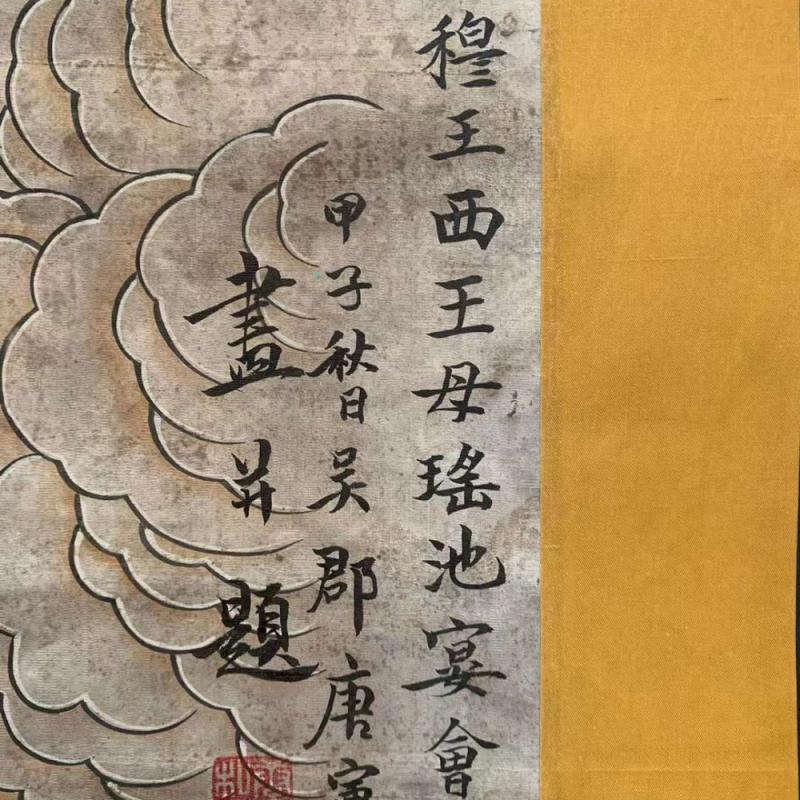 穆王西王母瑤池宴會
甲子秋日吳郡唐寅
畫并題